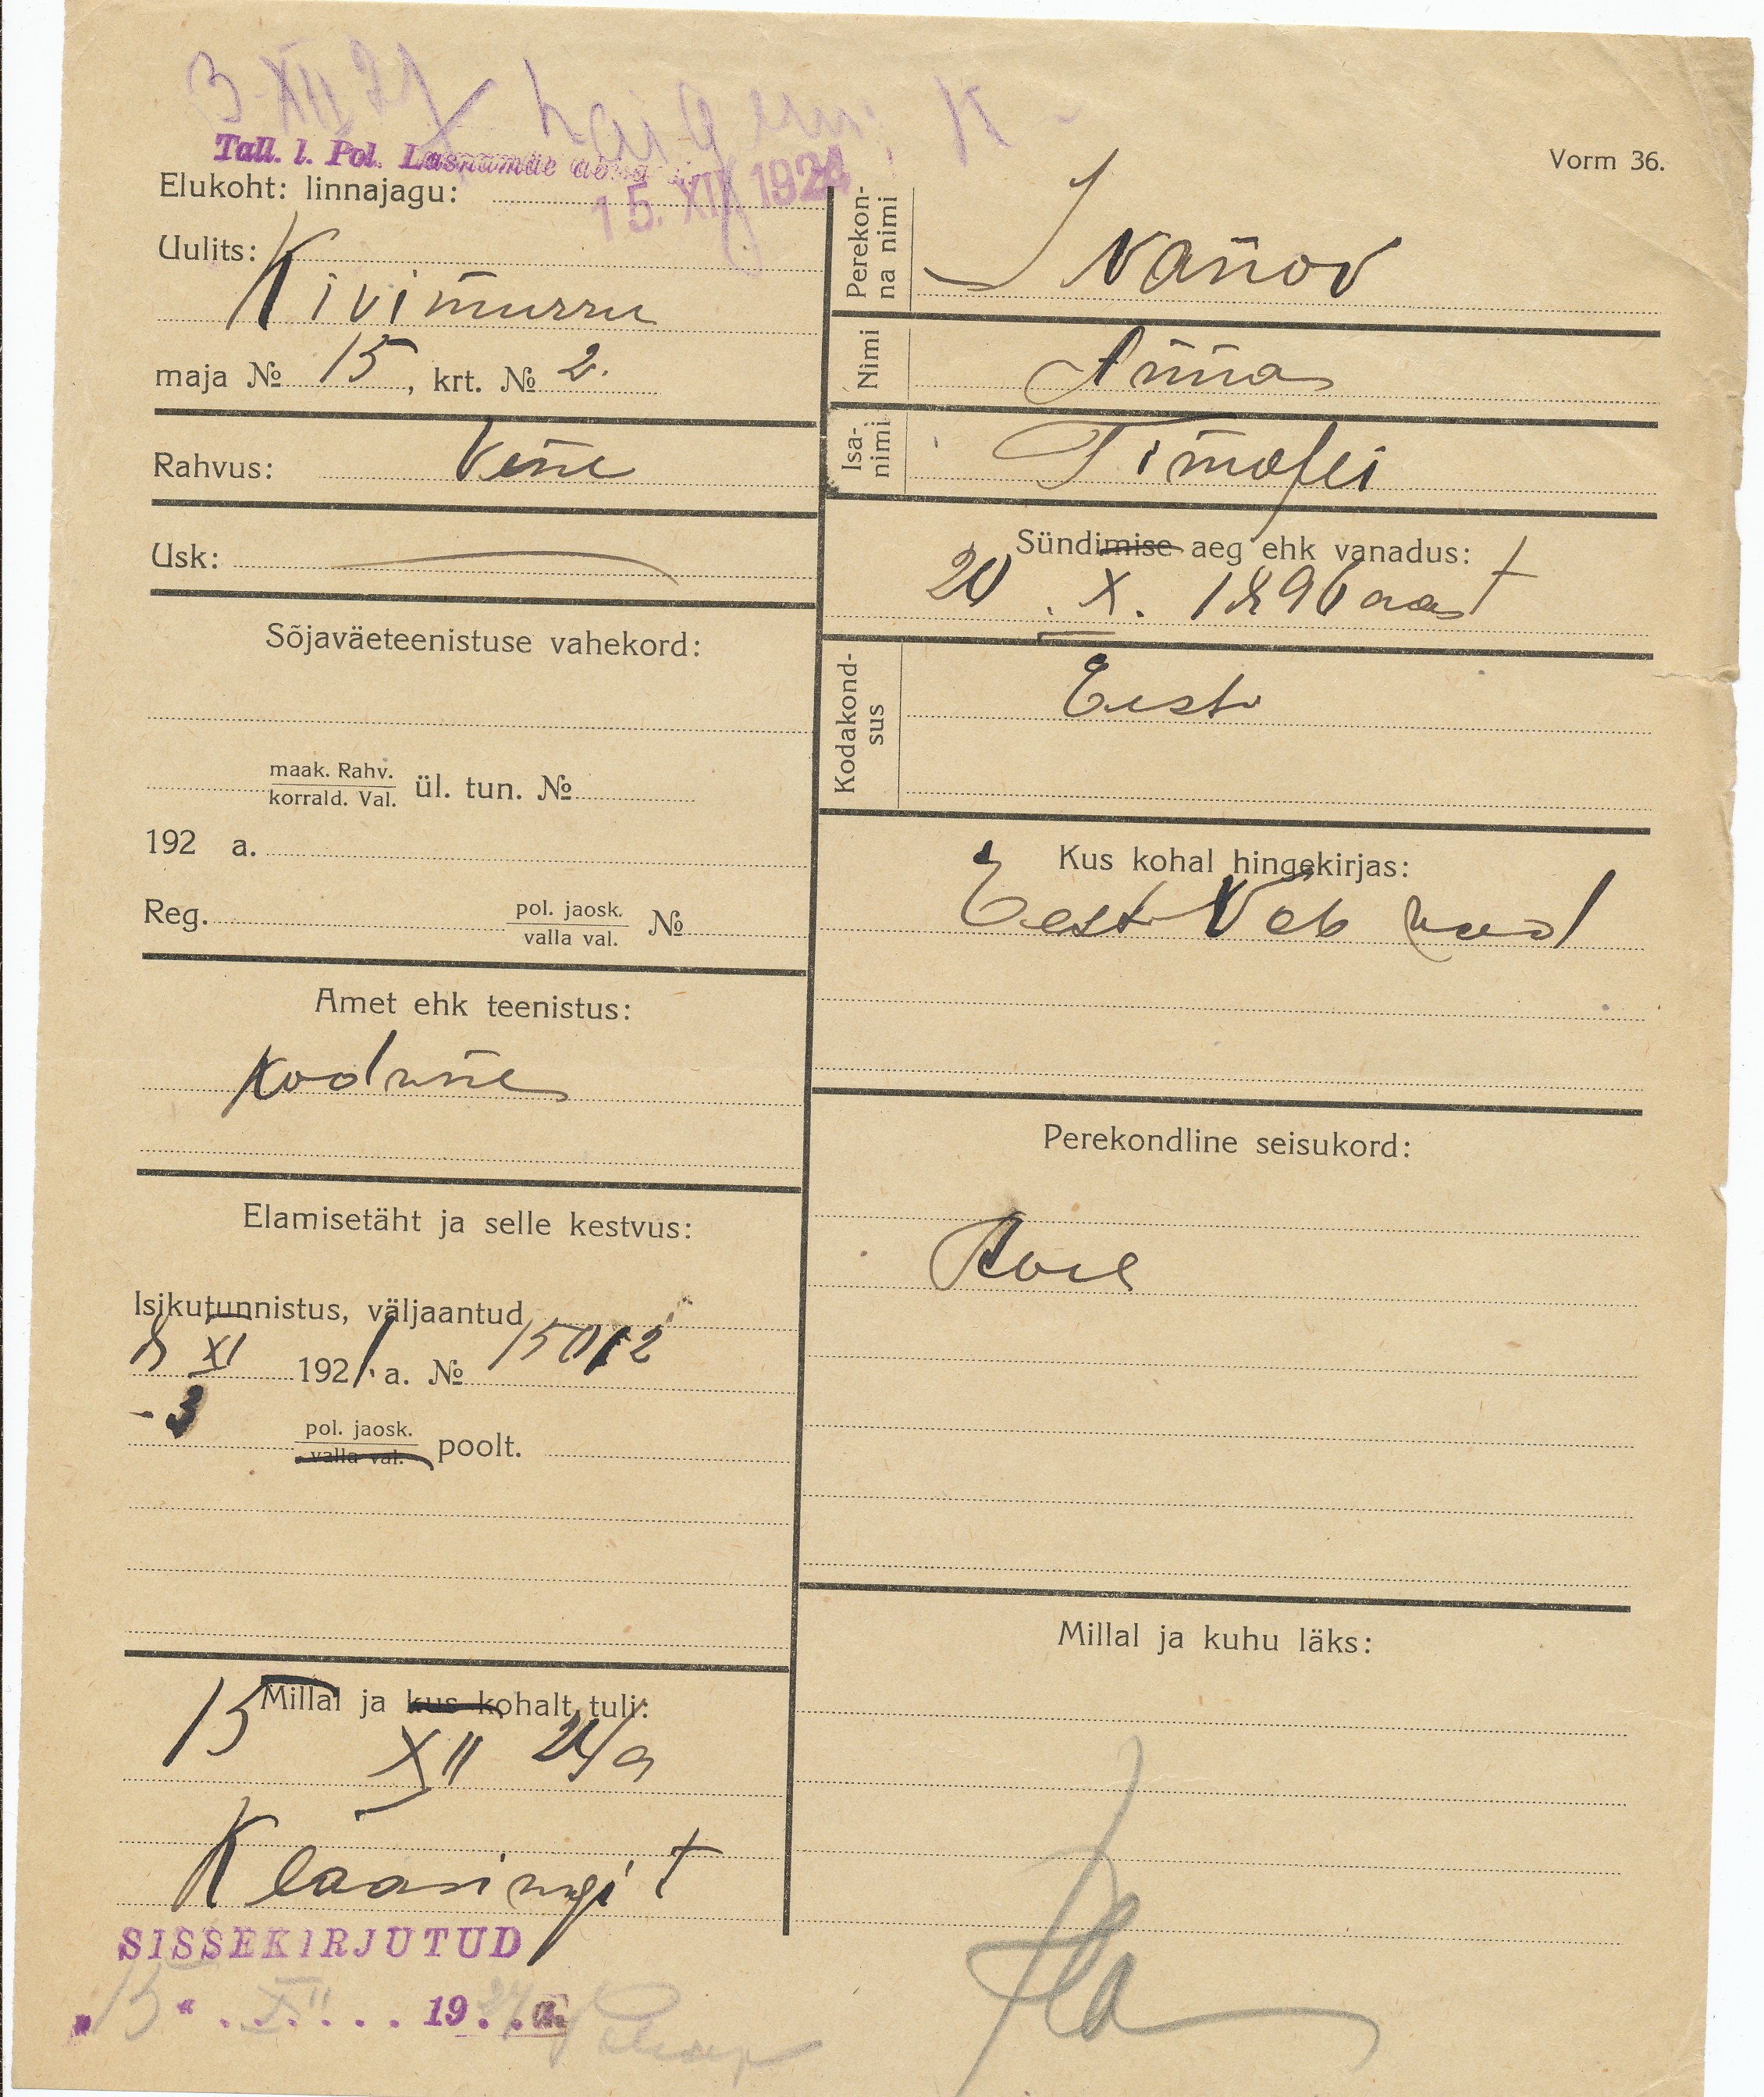 Tall. l. Pol. Lasnamäe
15. XII 1924
Vorm 36.
Elukoht: linnajagu:
Uulits:
Kivimurru
maja № 15, krt. № 2.
Rahvus: Vene
Usk:
Sõjaväeteenistuse vahekord:
maak. Rahv.
korrald. Val. ül. tun. №
192 a.
Reg. pol. jaosk.
valla val. №
Amet ehk teenistus:
Kodune
Elamisetäht ja selle kestvus:
Isikutunnistus, väljaantud
XI 1921. a. № 15012
- 3
pol. jaosk.
valla val. poolt.
Millal ja kus kohalt tuli:
15 XII 24 a
SISSEKIRJUTUD
„15“ XII 1924 a.
Perekon-
na nimi
Ivanov
Nimi Anna
Isa-
nimi
Timofei
Sündimise aeg ehk vanadus:
20. X. 1896 aast
Kodakond-
sus
Eesti
Kus kohal hingekirjas:
Eesti Vab
Perekondline seisukord:
Millal ja kuhu läks: